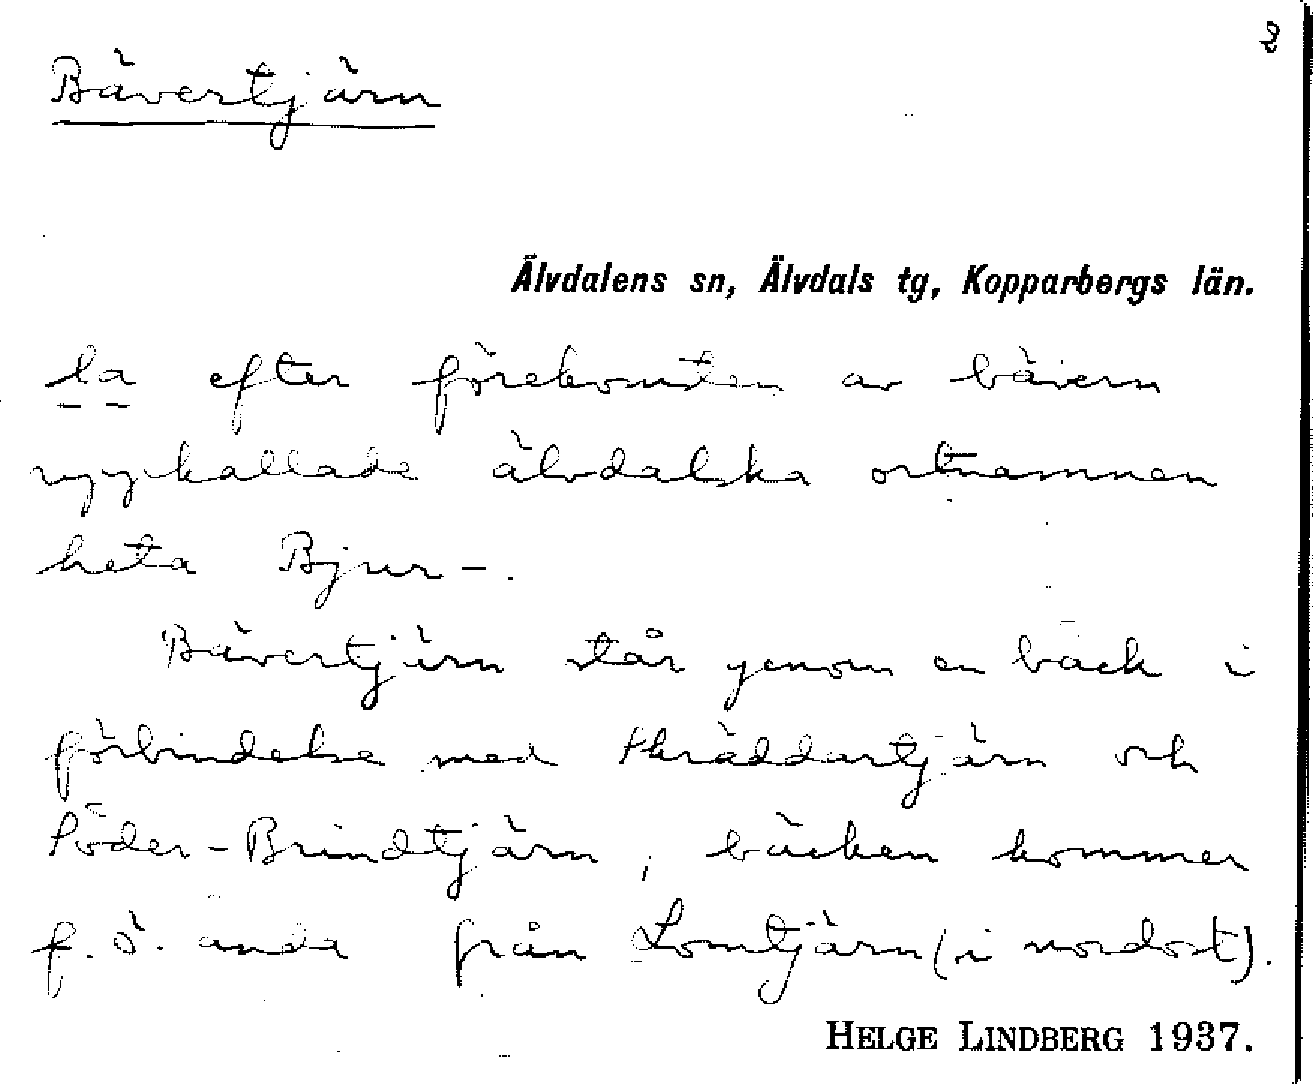 2
Bävertjärn
Älvdalens sn, Älvdals tg, Kopparbergs län.
la efter förekomsten av bävern
uppkallade älvdalska ortnamnen
heta Bjur-.
Bävertjärn står genom en bäck i
förbindelse med Skräddartjärn och
Söder-Brindtjärn; bäcken kommer
f.ö. ända från Lomtjärn (i nordost).
HELGE LINDBERG 1937.